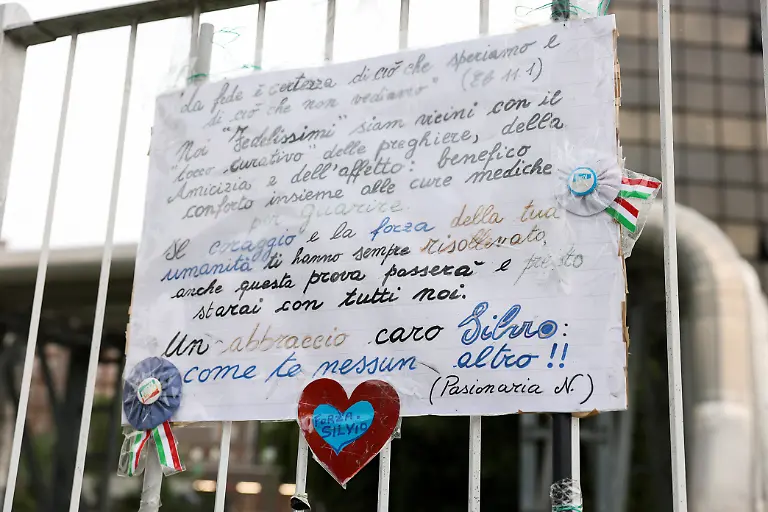 "La fede è certezza di ciò che speriamo e
di ciò che non vediamo" (Eb 11 1)
Noi "Fedelissimi" siam vicini con il
"tocco curativo" delle preghiere, della
Amicizia e dell'affetto: benefico
conforto insieme alle cure mediche
per guarire.
Se coraggio e la forza della tua
umanità ti hanno sempre risollevato,
anche questa prova passerà e presto
starai con tutti noi.
Un abbraccio caro Silvio:
come te nessun altro!!
(Pasionaria N.)
FORZA
SILVIO